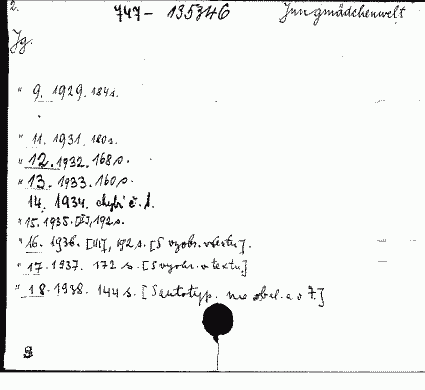 2. 747-135346 Jungmädchenwelt
Jg.
" 9. 1929. 184 s.
" 11. 1931. 180 s.
" 12. 1932. 168 s.
" 13. 1933. 160 s.
14. 1934. chybí č. 1.
" 15. 1935. 192 s.
" 16. 1936. 192 s. [S vyobr. v textu].
" 17. 1937. 172 s. [S vyobr. v textu]
" 18. 1938. 144 s. [S autotyp. na obál. a v t.]